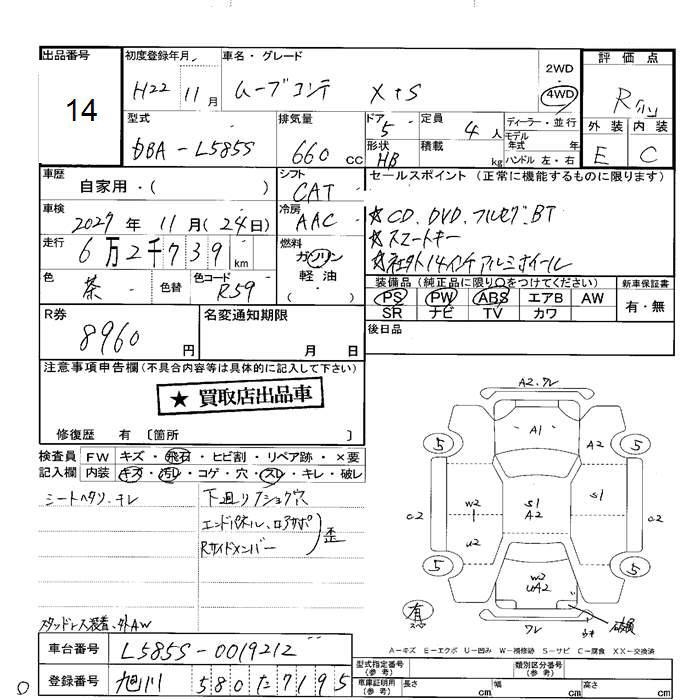 出品番号
14
初度登録年月
H22 11月
車名・グレード
ムーブコンテ X+S
2WD
4WD
評価点
R
外装 内装
E C
型式
DBA-L585S
排気量
660 cc
ドア 5
形状 HB
定員 4 人
積載 kg
ディーラー・並行
モデル
年式 年
ハンドル 左・右
車歴
自家用・( )
シフト
CAT
セールスポイント(正常に機能するものに限ります)
車検
2027年 11月(24日)
冷房
AAC
☆CD、DVD、フルセグ、BT
☆スマートキー
☆社外14インチアルミホイール
走行
6万2千739 km
燃料
ガソリン
軽油
( )
色
茶
色替
色コード
R59
装備品(純正品に限り○をつけてください)
PS PW ABS エアB AW
SR ナビ TV カワ
新車保証書
有・無
R券
8960 円
名変通知期限
月 日
後日品
注意事項申告欄(不具合内容等は具体的に記入して下さい)
★ 買取店出品車
修復歴 有 〔箇所 〕
検査員記入欄
FW キズ・飛石・ヒビ割・リペア跡・×要
内装 キズ・汚レ・コゲ・穴・スレ・キレ・破レ
シートヘタリ、キレ
下廻り
エンドパネル、ロアサポ
Rサイドメンバー
歪
スタッドレス装着、外AW
A2.ワレ
A1
A2
5
5
S1
W2
U2
S1
A2
C2
C2
5
5
W2
UA2
有
スペア
ワレ
破損
A-キズ E-エクボ U-凹み W-補修跡 S-サビ C-腐食 XX-交換済
車台番号
L585S-0019212
登録番号
旭川 580 た 7195
型式指定番号
(参考)
類別区分番号
(参考)
車庫証明用
(参考)
長さ cm
幅 cm
高さ cm
0